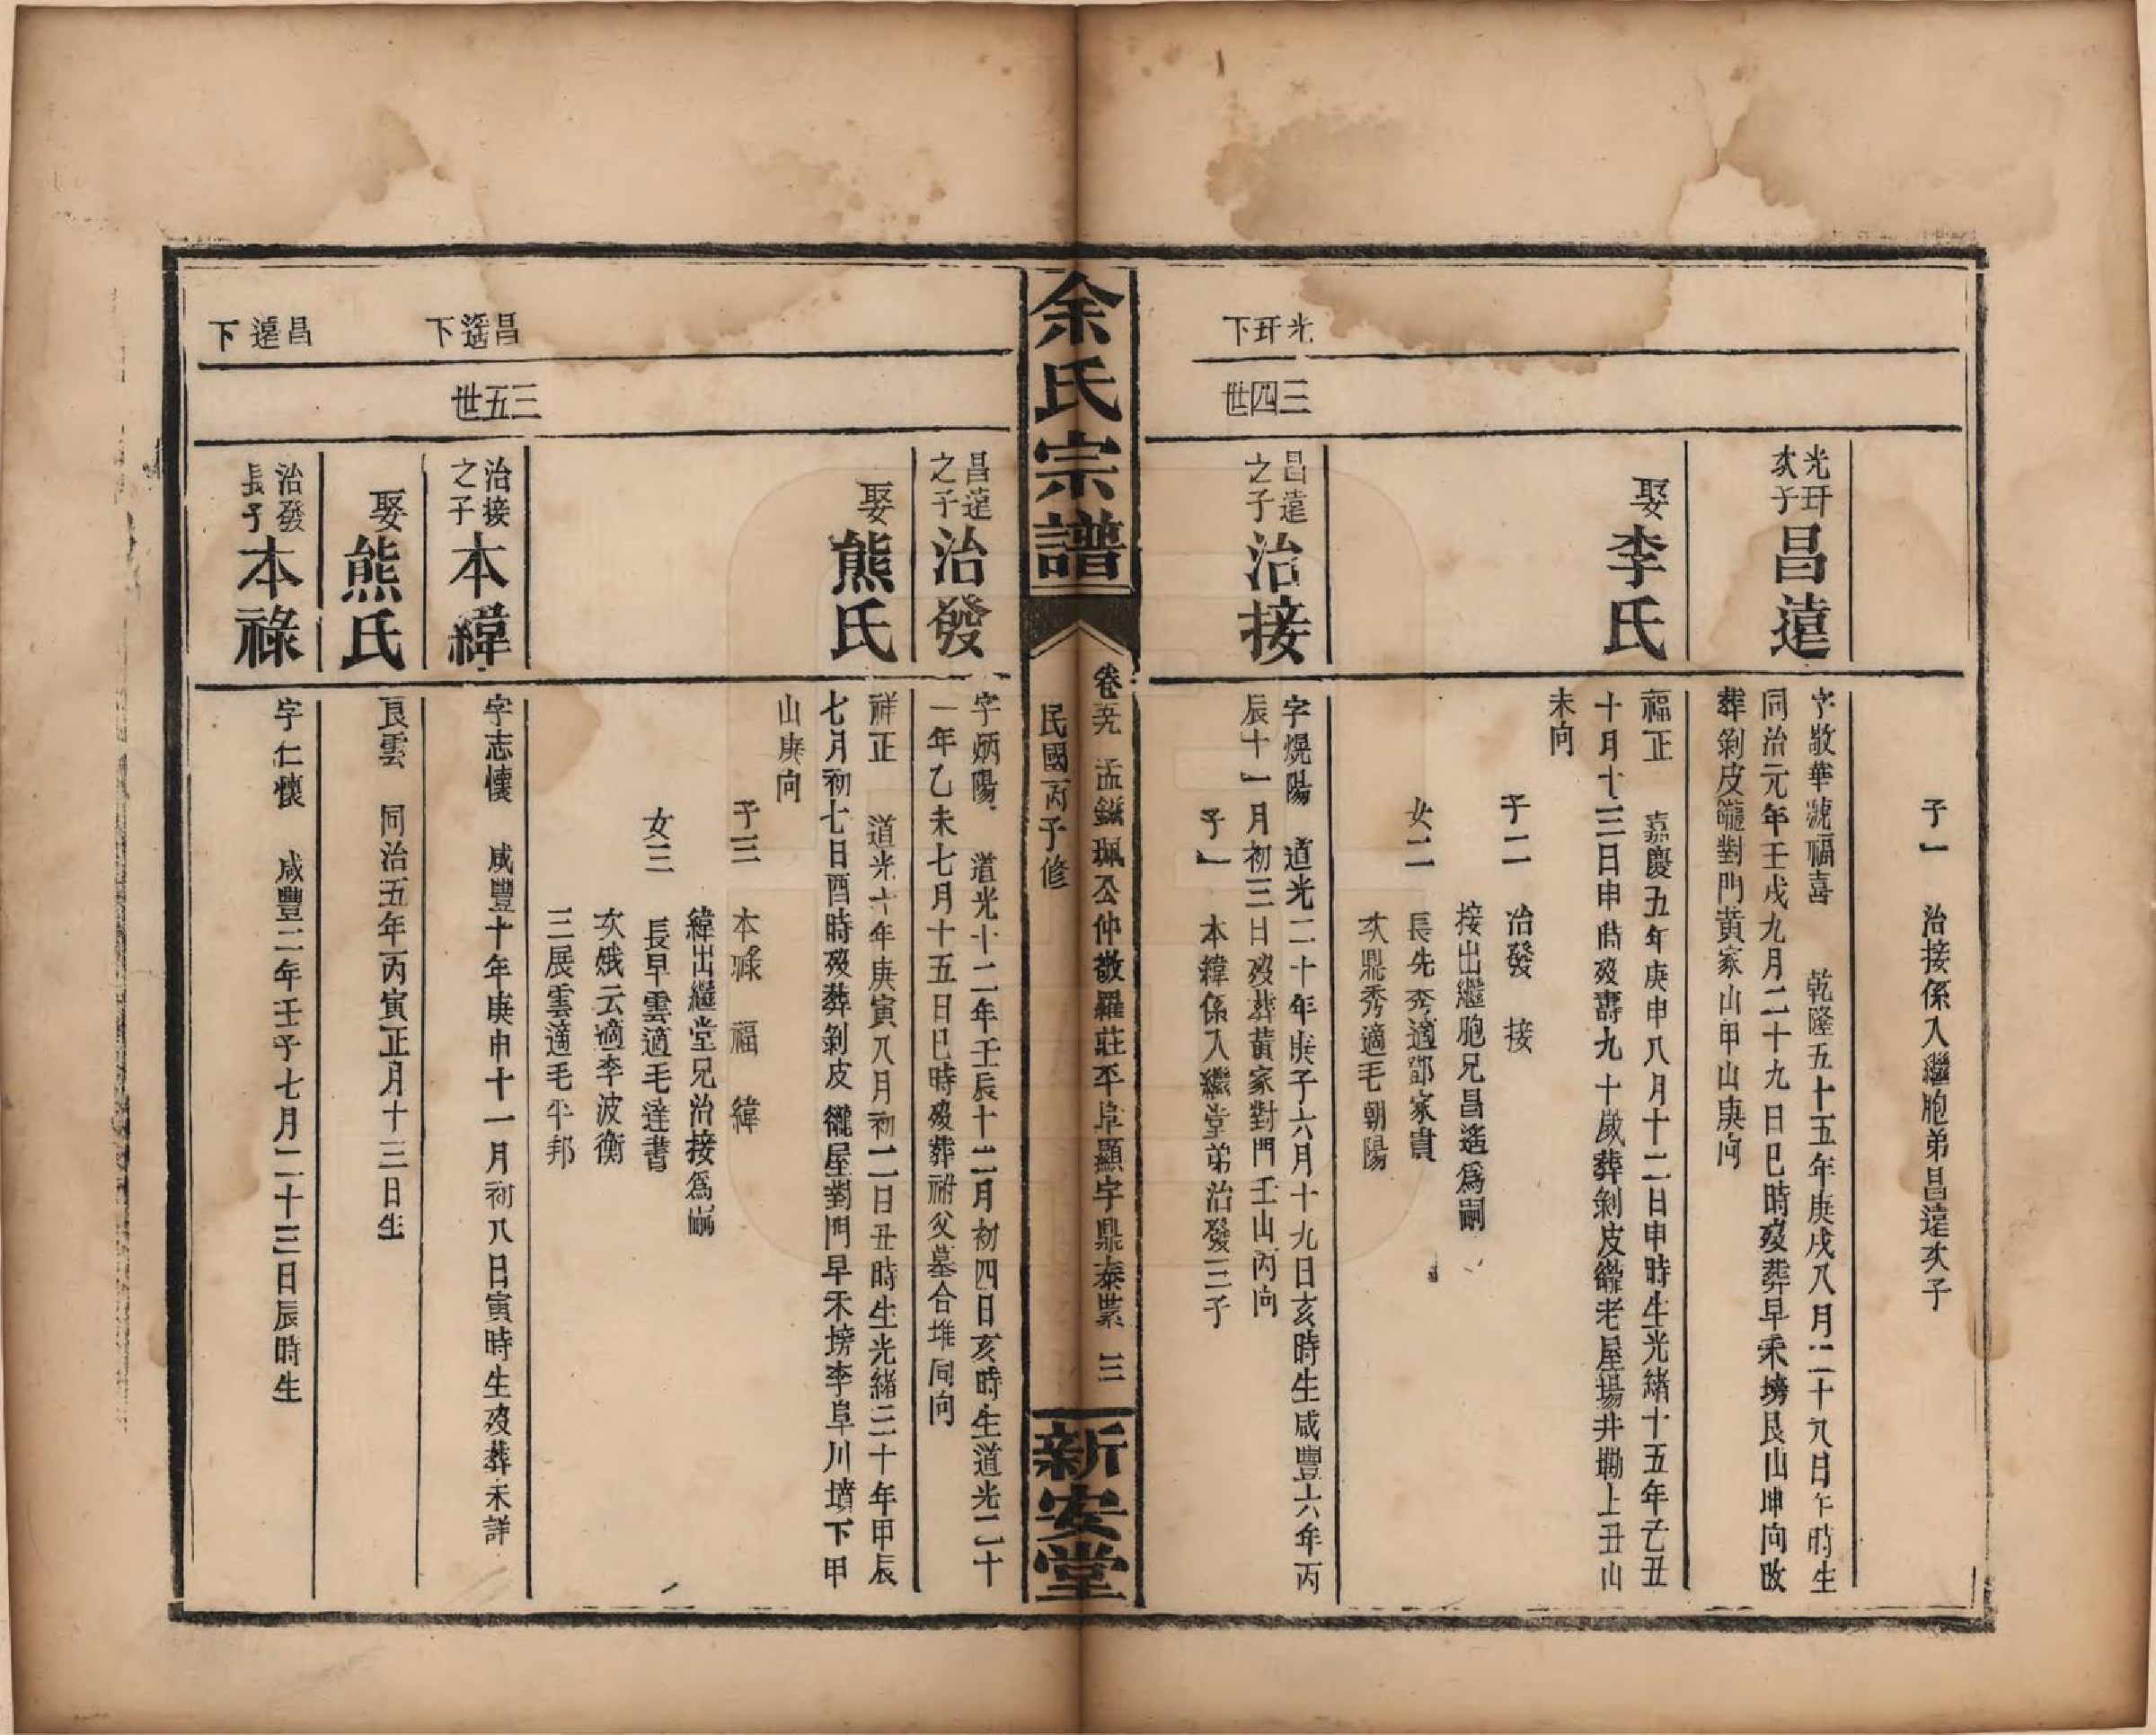 光玗下
三四世
子一　治接係入繼胞弟昌遠次子
光玗次子　昌遠
字敬華號福喜　乾隆五十五年庚戌八月二十八日午時生
同治元年壬戌九月二十九日巳時歿葬早禾塝艮山坤向改
葬剝皮巃對門黄家山甲山庚向
娶李氏
福正　嘉慶五年庚申八月十二日申時生光緒十五年乙丑
十月十三日申時歿壽九十歲葬剝皮巃老屋場井墈上丑山
未向
子二　治發　接
接出繼胞兄昌遙爲嗣
女二　長先秀適鄧家貴
次鼎秀適毛朝陽
昌遠之子　治接
字焜陽　道光二十年庚子六月十九日亥時生咸豐六年丙
辰十一月初三日歿葬黄家對門壬山丙向
子一　本緯係入繼堂弟治發三子
余氏宗譜
卷　孟鎡珮公仲敬羅莊平阜顯宇鼎泰業　三
民國丙子修
新安堂
昌遙下
三五世
昌遠下
昌遠之子　治發
字炳陽　道光十二年壬辰十二月初四日亥時生道光二十
一年乙未七月十五日巳時歿葬祔父墓合堆同向
娶熊氏
祥正　道光十年庚寅八月初二日丑時生光緒三十年甲辰
七月初七日酉時歿葬剝皮巃屋對門早禾塝李阜川墳下甲
山庚向
子三　本祿　福　緯
緯出繼堂兄治接爲嗣
女三　長早雲適毛達書
次娥云適李波衡
三展雲適毛平邦
治接之子　本緯
字志懷　咸豐十年庚申十一月初八日寅時生歿葬未詳
娶熊氏
良雲　同治五年丙寅正月十三日生
治發長子　本祿
字仁懷　咸豐二年壬子七月二十三日辰時生